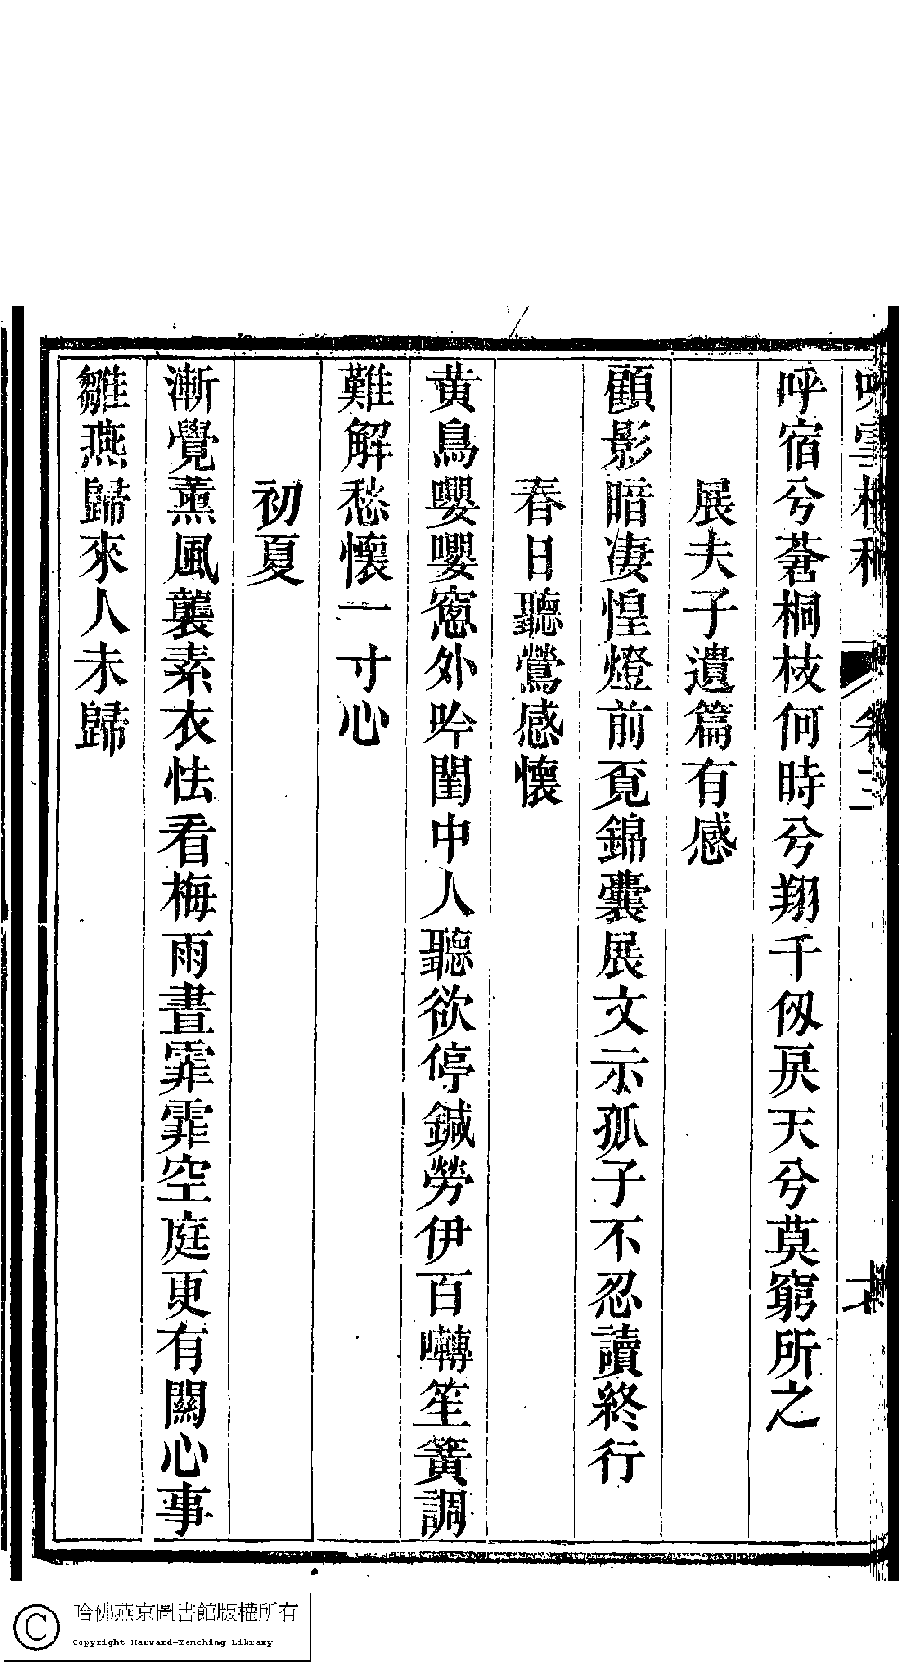 卷三
呼宿兮蒼桐枝何時兮翔千仭戾天兮莫窮所之
展夫子遺篇有感
顧影暗凄惶燈前覔錦囊展文示孤子不忍讀終行
春日聽鶯感懷
黃鳥嚶嚶窻外吟閨中人聽欲停鍼勞伊百囀笙簧調
難解愁懷一寸心
初夏
漸覺薰風襲素衣怯看梅雨晝霏霏空庭更有關心事
雛燕歸來人未歸
哈佛燕京圖書館版權所有
Copyright Harvard-Yenching Library